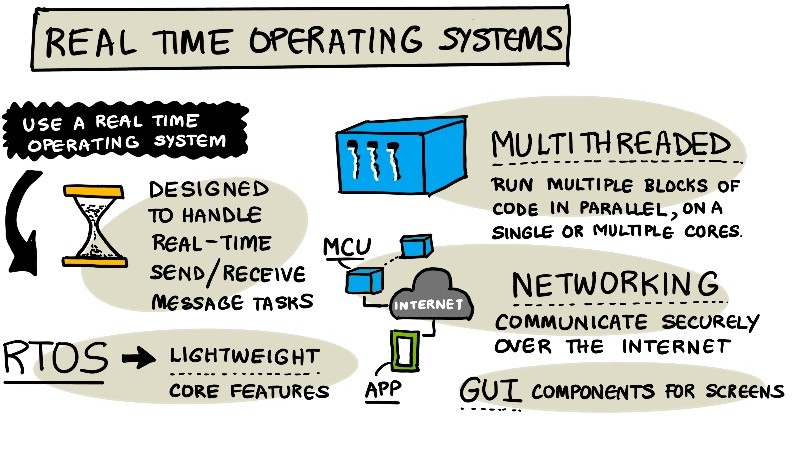 REAL TIME OPERATING SYSTEMS
USE A REAL TIME
OPERATING SYSTEM
DESIGNED
TO HANDLE
REAL-TIME
SEND/RECEIVE
MESSAGE TASKS
RTOS → LIGHTWEIGHT
CORE FEATURES
MULTITHREADED
RUN MULTIPLE BLOCKS OF
CODE IN PARALLEL, ON A
SINGLE OR MULTIPLE CORES.
MCU
INTERNET
APP
NETWORKING
COMMUNICATE SECURELY
OVER THE INTERNET
GUI COMPONENTS FOR SCREENS